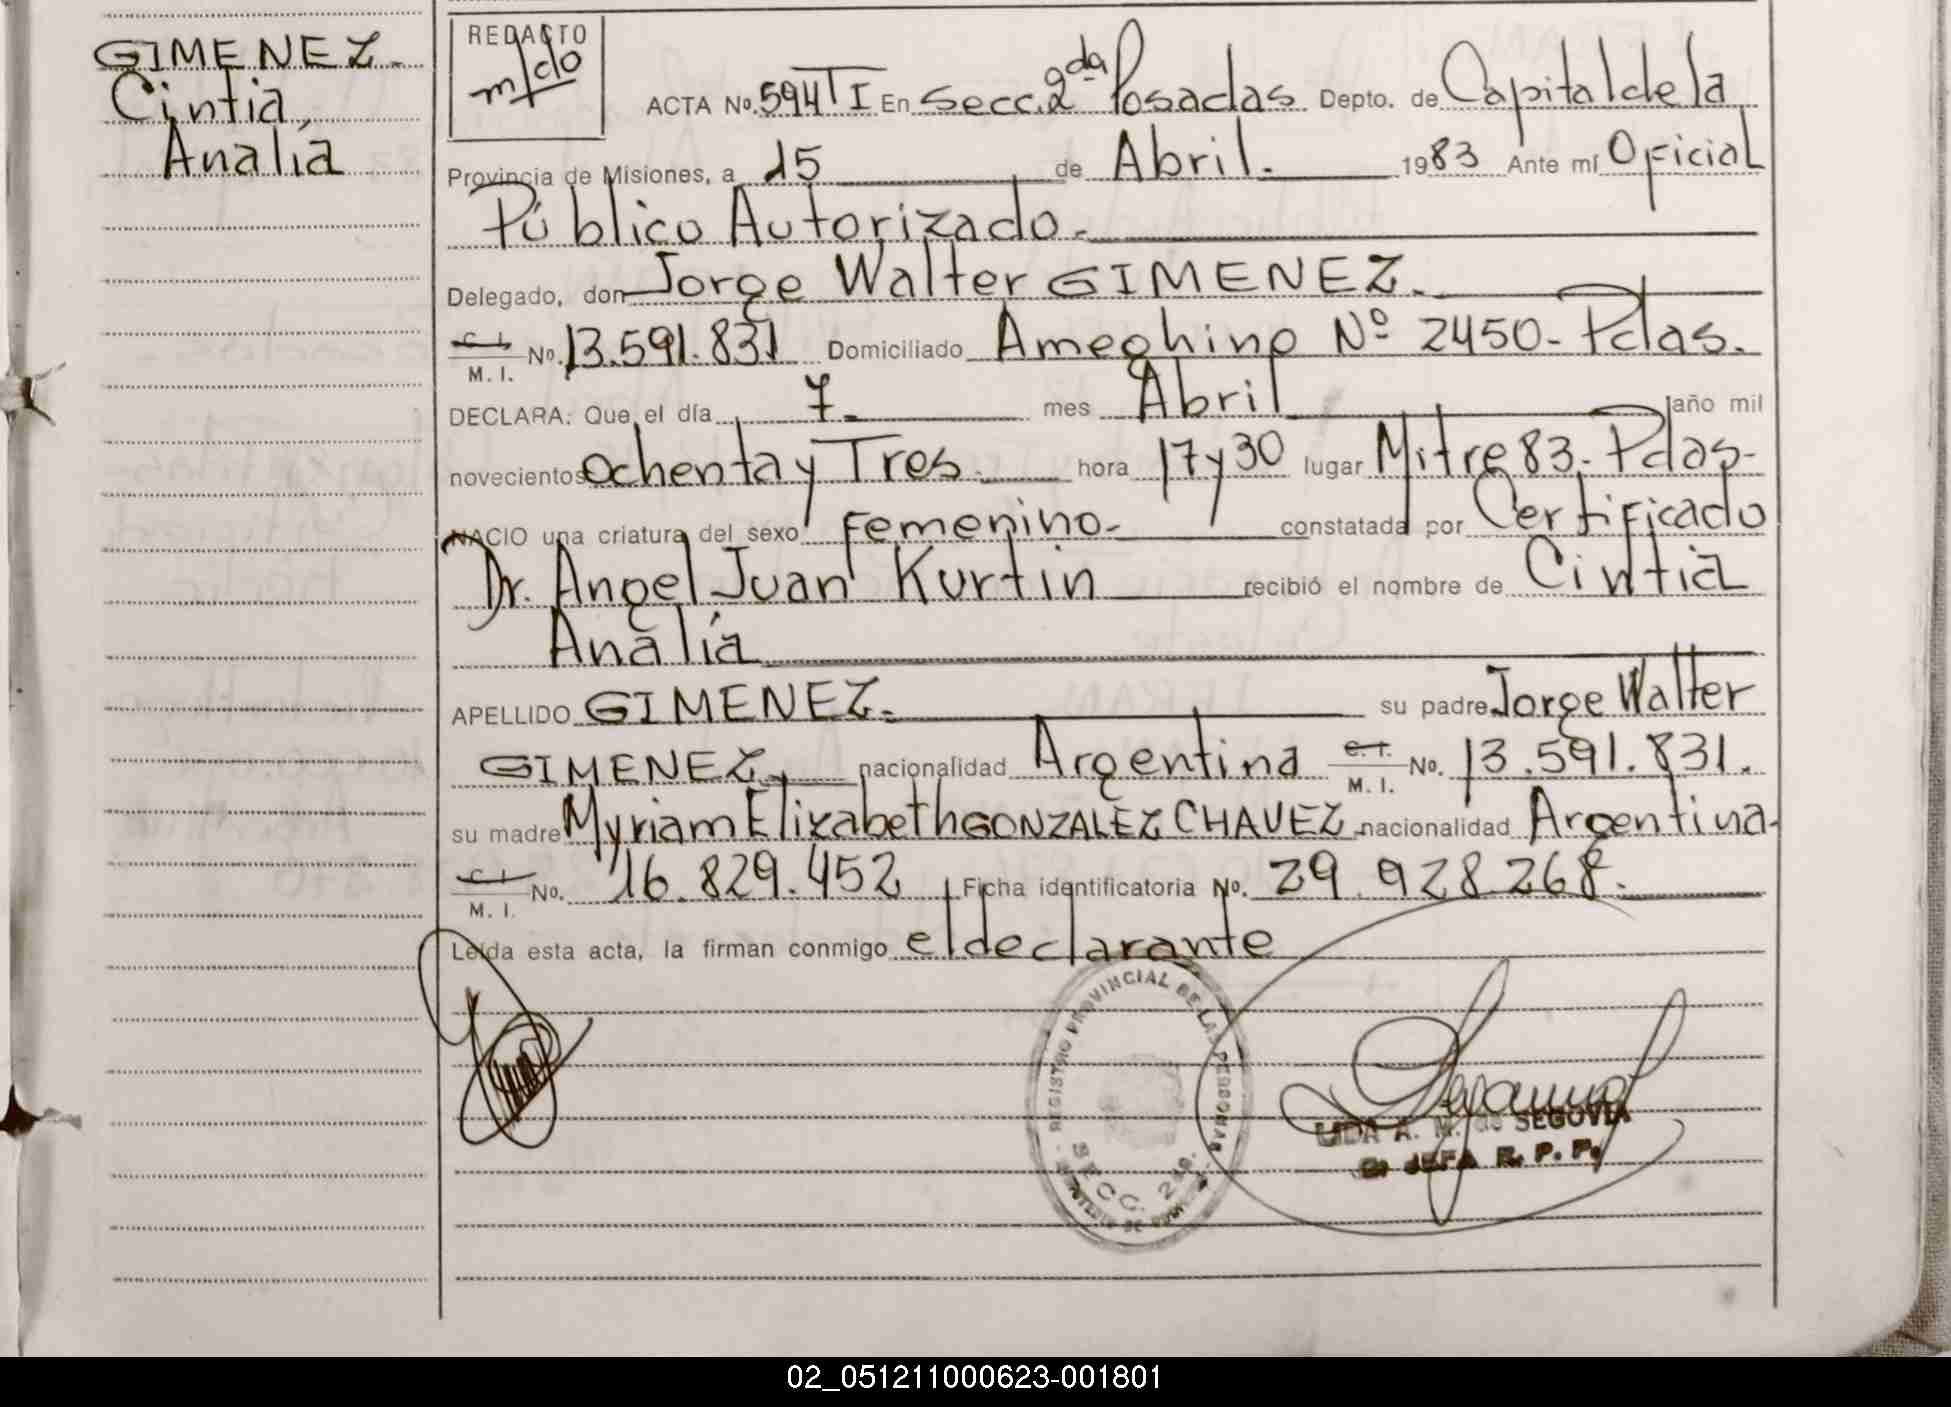 GIMENEZ.
Cintia,
Analía
REDACTO
ACTA No. 594 T I En Secc. 2da Posadas Depto. de Capital de la
Provincia de Misiones, a 15 de Abril. 1983 Ante mí Oficial
Público Autorizado.
Delegado, don Jorge Walter GIMENEZ.
C. I.
M. I. No. 13.591.831 Domiciliado Ameghino Nº 2450- Pdas.
DECLARA: Que el día 7- mes Abril año mil
novecientos ochenta y Tres. hora 17 y 30 lugar Mitre 83. Pdas-
NACIO una criatura del sexo Femenino- constatada por Certificado
Dr. Angel Juan Kurtin recibió el nombre de Cintia
Analía
APELLIDO GIMENEZ. su padre Jorge Walter
GIMENEZ, nacionalidad Argentina C. I.
M. I. No. 13.591.831.
su madre Myriam Elizabeth GONZALEZ CHAVEZ nacionalidad Argentina-
C. I.
M. I. No. 16.829.452 Ficha identificatoria No. 29.928.268.
Leída esta acta, la firman conmigo el declarante
REGISTRO PROVINCIAL DE LAS PERSONAS
SECC. 2da.
LIDA A. M. de SEGOVIA
JEFA R. P. P.
02_051211000623-001801